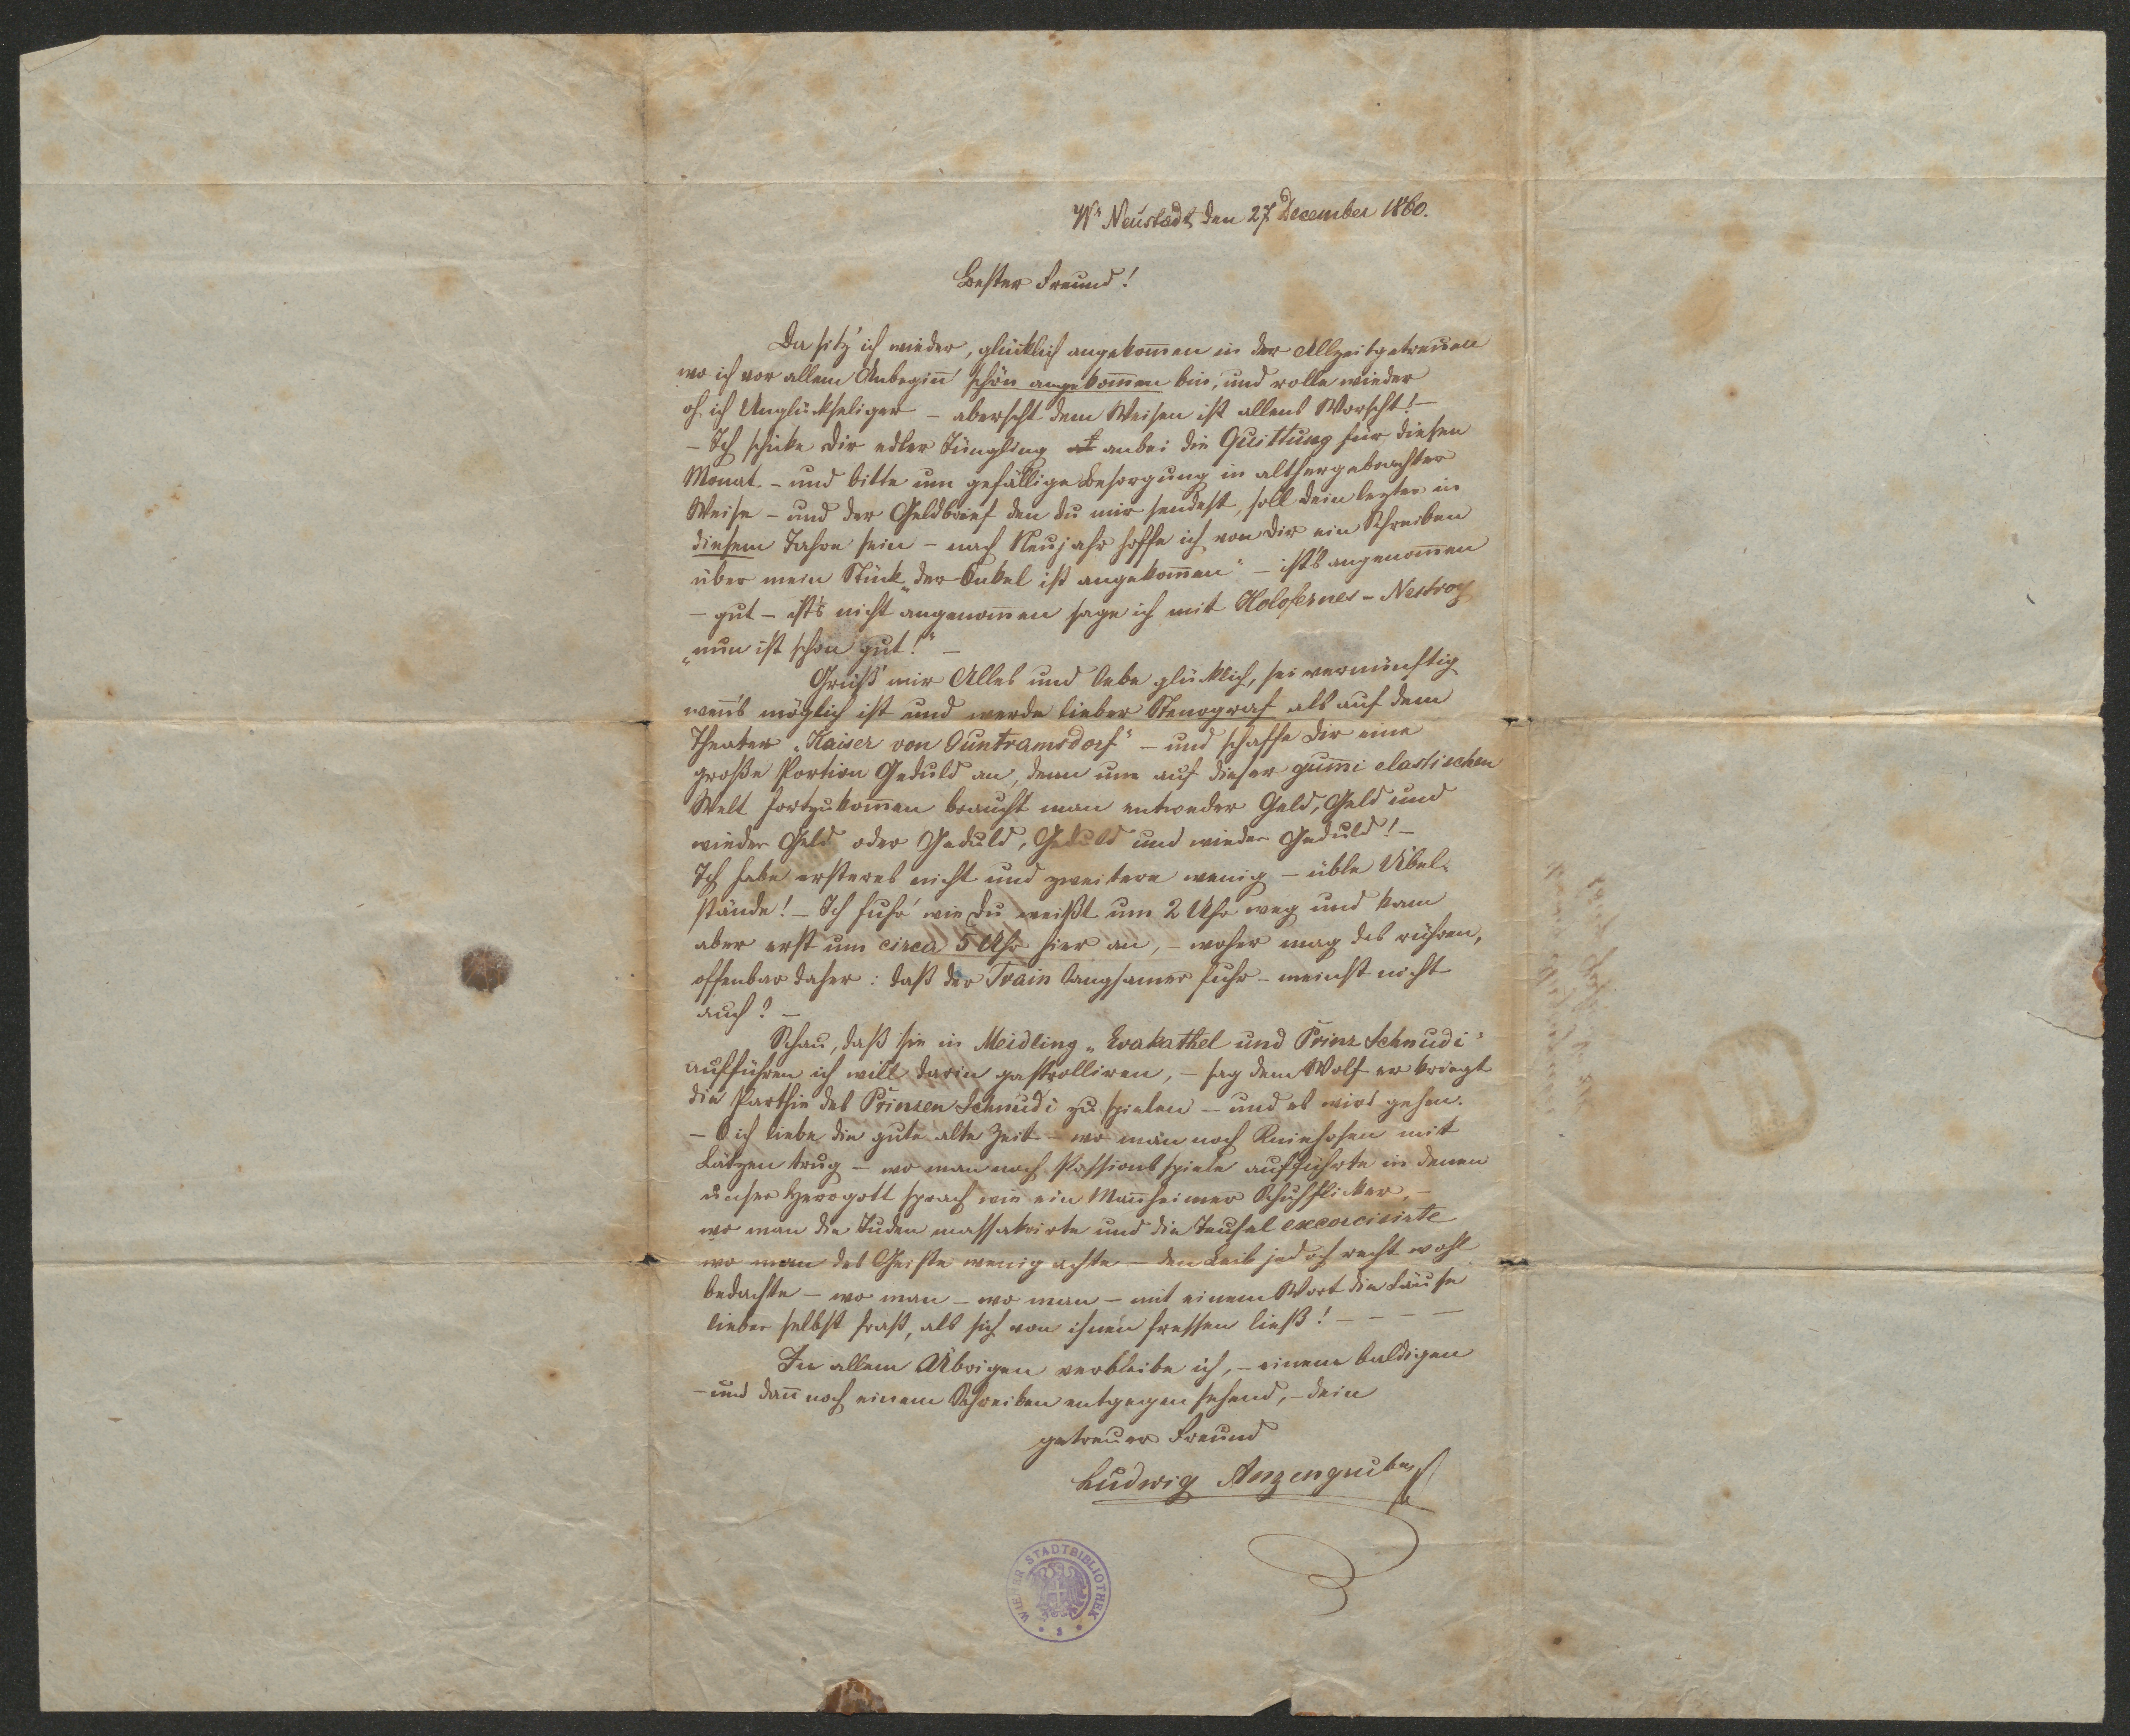 Wr Neustadt den 27 December 1860.
Bester Freund!
Da sitz' ich wieder, glücklich angekom̄en in der Allzeitgetreuen
wo ich vor allem Anbegin̄ schön angekom̄en bin, und rolle wieder
oh ich Unglückseliger – aberscht dem Weisen ist allens Worscht! –
– Ich schicke dir edler Jüngling anbei die Quittung für diesen
Monat – und bitte um gefällige Besorgung in althergebrachter
Weise – und der Geldbrief den du mir sendest, soll dein lezter in
diesem Jahre sein – nach Neujahr hoffe ich von dir ein Schreiben
über mein Stück „der Onkel ist angekom̄en" – ist's angenom̄en
– gut – ist's nicht angenom̄en sage ich mit Holofernes – Nestroy
„nun ist schon gut!" –
Grüß' mir Alles und lebe glücklich, sei vernünftig
wen̄'s möglich ist und werde lieber Stenograf als auf dem
Theater „Kaiser von Guntramsdorf" – und schaffe dir eine
große Portion Geduld an, denn um auf dieser gum̄i elastischen
Welt fortzukom̄en braucht man entweder Geld, Geld und
wieder Geld oder Geduld, Geduld und wieder Geduld! –
Ich habe ersteres nicht und zweitere wenig – üble Übel-
stände! – Ich fuhr' wie du weißt um 2 Uhr weg und kam
aber erst um circa 5 Uhr hier an, – woher mag das rühren,
offenbar daher: daß der Train langsamer fuhr – meinst nicht
auch? –
Schau, daß sie in Meidling „Evakathel und Prinz Schnudi"
aufführen ich will darin gastrolliren, – sag dem Wolf er kriegt
die Parthie des Prinzen Schnudi zu spielen – und es wird gehen.
– O ich liebe die gute alte Zeit – wo man noch Kniehosen mit
Lätzen trug – wo man noch Passionsspiele aufführte in denen
unser Herrgott sprach wie ein Man̄heimer Schuhflicker, –
wo man die Juden massakrirte und die Teufel excorcisirte
wo man des Geistes wenig achte – den Leib jedoch recht wohl
bedachte – wo man – wo man – mit einem Wort die Läuse
lieber selbst fraß, als sich von ihnen fressen ließ! – – – –
In allem Übrigen verbleibe ich, – einem baldigen
– und dan̄ noch einem Schreiben entgegen sehend, – dein
getreuer Freund
Ludwig Anzengruber
WIENER STADTBIBLIOTHEK